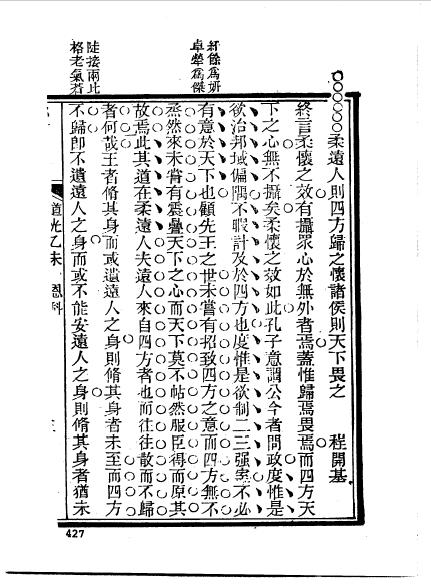 紆餘爲妍
卓犖爲傑
陡接兩此
格老氣蒼
柔遠人則四方歸之懷諸侯則天下畏之　程開基
終言柔懷之效有攝眾心於無外者焉蓋惟歸焉畏焉而四方天
下之心無不攝矣柔懷之效如此孔子意謂公今者問政度惟是
欲治邦域偏隅不暇計及於四方也度惟是欲制二三强禦不必
有意於天下也顧先王之世未嘗有招致四方之意而四方無不
烝然來未嘗有震疊天下之心而天下莫不帖然服臣得而原其
故焉此其道在柔遠人夫遠人來自四方者也而往往散而不歸
者何哉王者脩其身而或遺遠人之身則脩其身者未至而四方
不歸即不遺遠人之身而或不能安遠人之身則脩其身者猶未
道光乙未　恩科
427